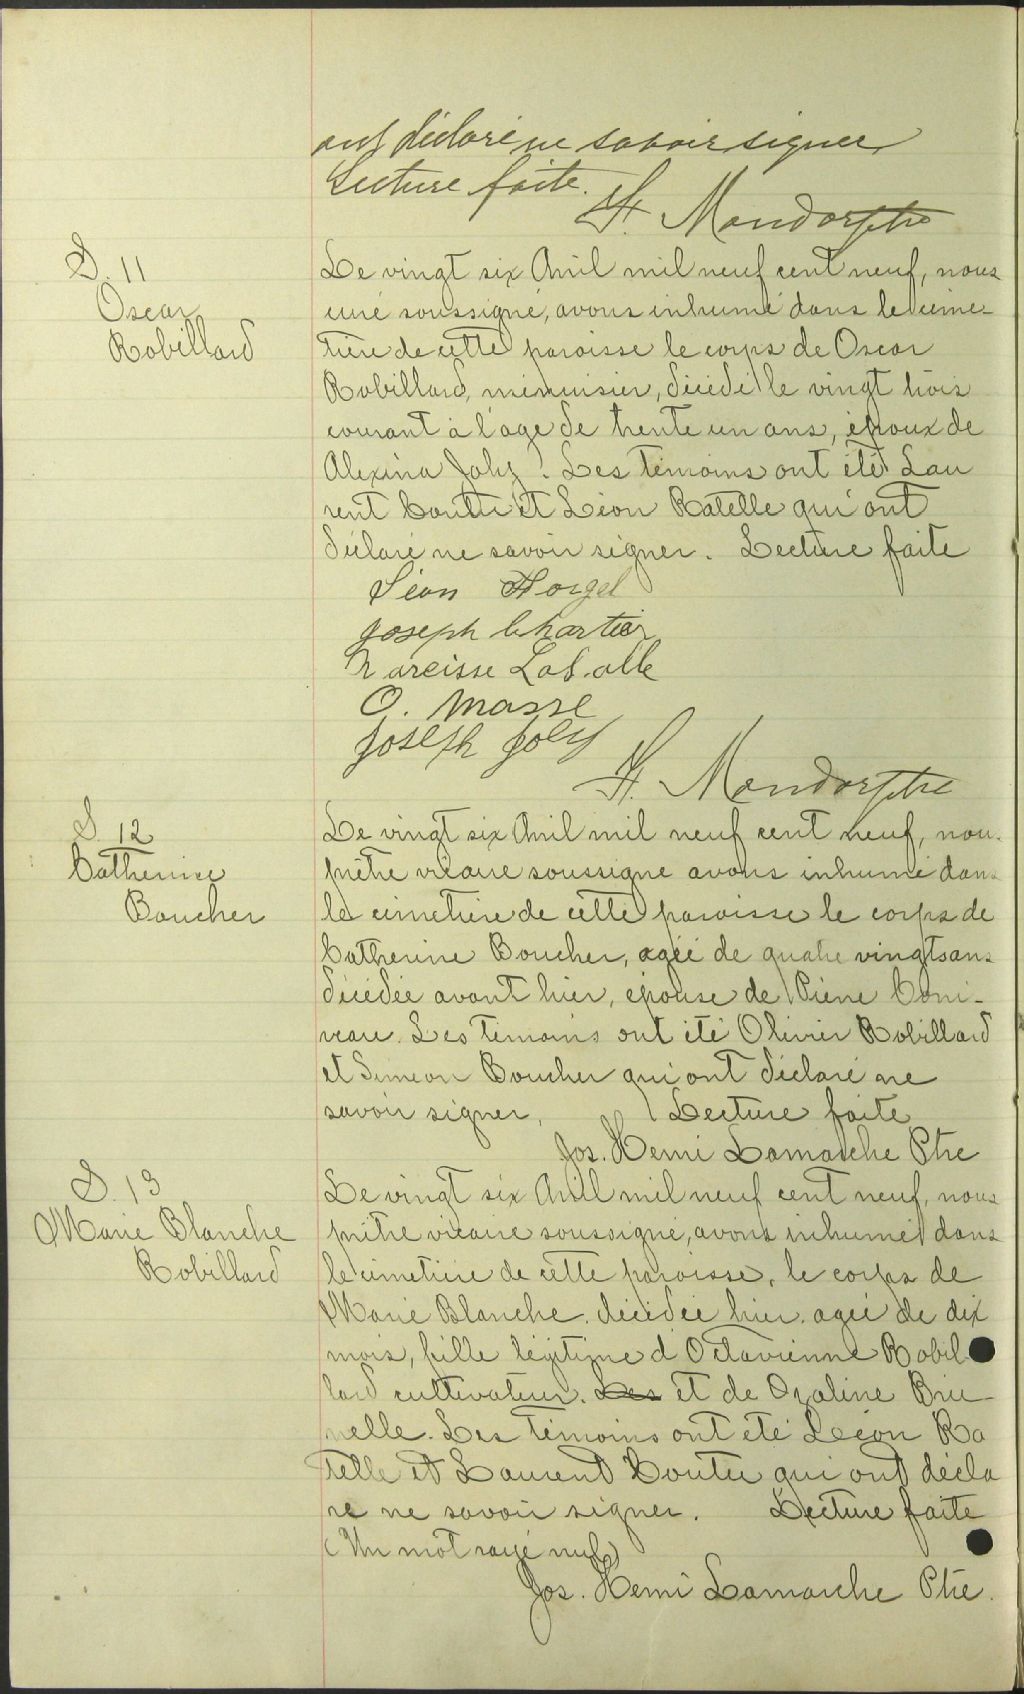 ont déclaré ne savoir signer
Lecture faite.
F. Mondor ptre
S. 11
Oscar
Robillard
Le vingt six Avril mil neuf cent neuf, nous
curé soussigné, avons inhumé dans le cime-
tière de cette paroisse le corps de Oscar
Robillard, menuisier, décédé le vingt trois
courant à l'age de trente un ans, époux de
Alexina Joly. Les témoins ont été Lau
rent Coutu et Léon Ratelle qui ont
déclaré ne savoir signer. Lecture faite
Léon
Joseph Chartier
Narcisse LaSalle
O. Masse
Joseph Joly
F. Mondor ptre
S. 12
Catherine
Boucher
Le vingt six Avril mil neuf cent neuf, nous
prêtre vicaire soussigné avons inhumé dans
le cimetière de cette paroisse le corps de
Catherine Boucher, agée de quatre vingts ans
décédée avant hier, épouse de Pierre
Les temoins ont été Olivier Robillard
et Simeon Boucher qui ont déclaré ne
savoir signer, Lecture faite
Jos. Henri Lamarche Ptre
S. 13
Marie Blanche
Robillard
Le vingt six Avril mil neuf cent neuf, nous
prêtre vicaire soussigné, avons inhumé dans
le cimetière de cette paroisse, le corps de
Marie Blanche décédée hier, agée de dix
mois, fille légitime d'Octavienne Robil
lard cultivateur. Les et de Ozaline Bru-
nelle. Les témoins ont été Léon Ra
telle et Laurent Coutu qui ont décla
ré ne savoir signer. Lecture faite
(Un mot rayé nul)
Jos. Henri Lamarche Ptre.